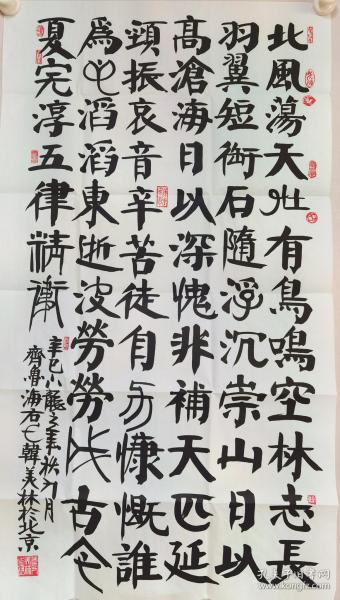 北風蕩天地有鳥鳴空林志長
羽翼短銜石隨浮沉崇山日以
高滄海日以深愧非補天匹延
頸振哀音辛苦徒自力慷慨誰
為心滔滔東逝波勞勞成古今
夏完淳五律精衛
辛巳小龍之年 月
齊魯海右 韓美林於北京
孔夫子旧书网